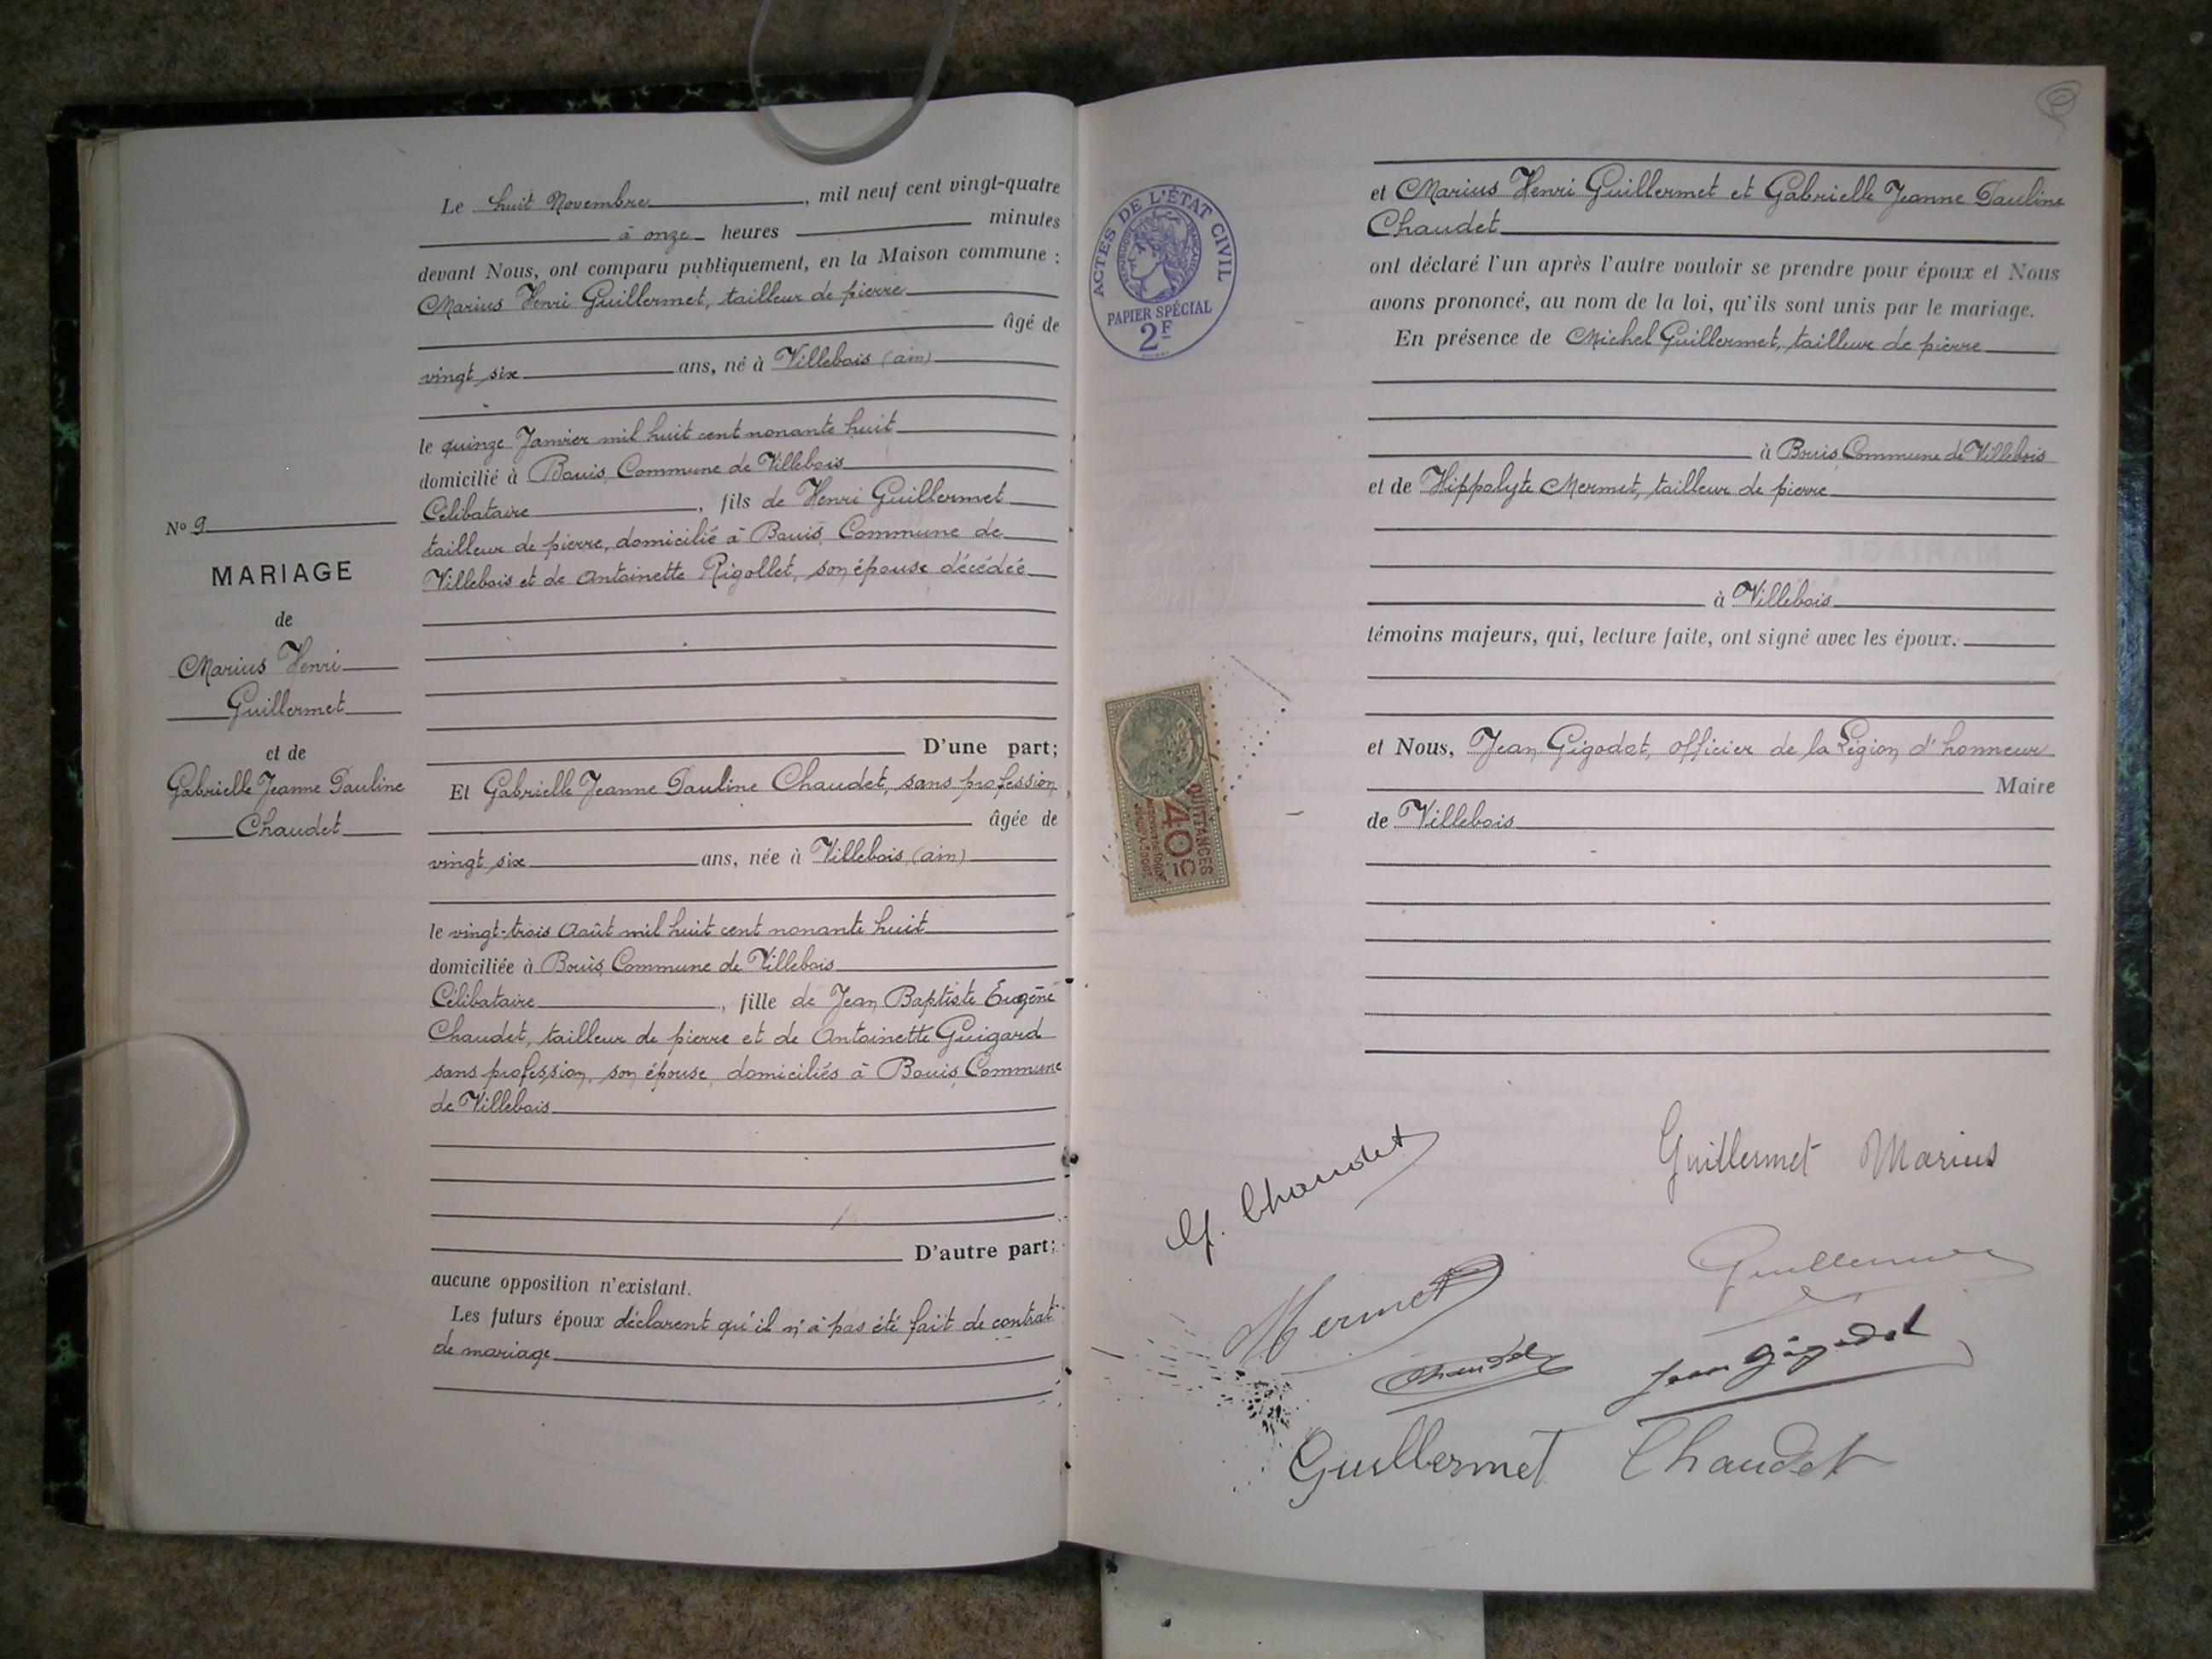 Le huit Novembre, mil neuf cent vingt-quatre
à onze heures minutes
devant Nous, ont comparu publiquement, en la Maison commune :
Marius Henri Guillermet, tailleur de pierre
âgé de
vingt six ans, né à Villebois (ain)
le quinze Janvier mil huit cent nonante huit
domicilié à Bouis, Commune de Villebois
Célibataire, fils de Henri Guillermet
tailleur de pierre, domicilié à Bouis, Commune de
Villebois et de Antoinette Rigollet, son épouse décédée
D'une part;
Et Gabrielle Jeanne Pauline Chaudet, sans profession
âgée de
vingt six ans, née à Villebois (ain)
le vingt-trois Août mil huit cent nonante huit
domiciliée à Bouis, Commune de Villebois
Célibataire, fille de Jean Baptiste Eugène
Chaudet, tailleur de pierre et de Antoinette Guigard
sans profession, son épouse, domiciliés à Bouis, Commune
de Villebois
D'autre part;
aucune opposition n'existant.
Les futurs époux déclarent qu'il n'a pas été fait de contrat
de mariage
N° 9
MARIAGE
de
Marius Henri
Guillermet
et de
Gabrielle Jeanne Pauline
Chaudet
et Marius Henri Guillermet et Gabrielle Jeanne Pauline
Chaudet
ont déclaré l'un après l'autre vouloir se prendre pour époux et Nous
avons prononcé, au nom de la loi, qu'ils sont unis par le mariage.
En présence de Michel Guillermet, tailleur de pierre
à Bouis, Commune de Villebois
et de Hippolyte Mermet, tailleur de pierre
à Villebois
témoins majeurs, qui, lecture faite, ont signé avec les époux.
et Nous, Jean Gigodot, officier de la Légion d'honneur
Maire
de Villebois
ACTES DE L'ÉTAT CIVIL
RÉPUBLIQUE FRANÇAISE
PAPIER SPÉCIAL
2F
QUITTANCES
40c
G. Chaudet
Guillermet Marius
Mermet
Guillermet
Chaudet
Jean Gigodot
Guillermet Chaudet